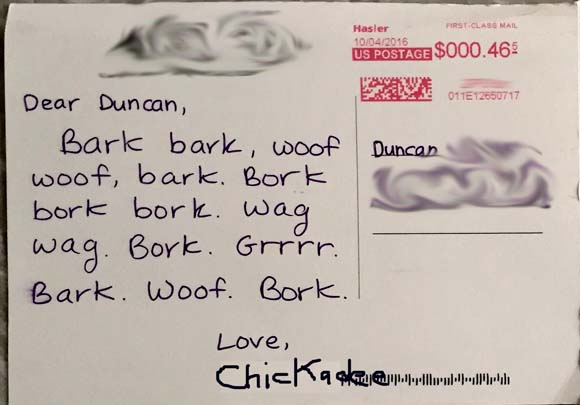 Hasler
FIRST-CLASS MAIL
10/04/2016
US POSTAGE $000.46⁵
011E12650717
Dear Duncan,
Bark bark, woof
woof, bark. Bork
bork bork. Wag
wag. Bork. Grrrr.
Bark. Woof. Bork.
Love,
Chickadee
Duncan